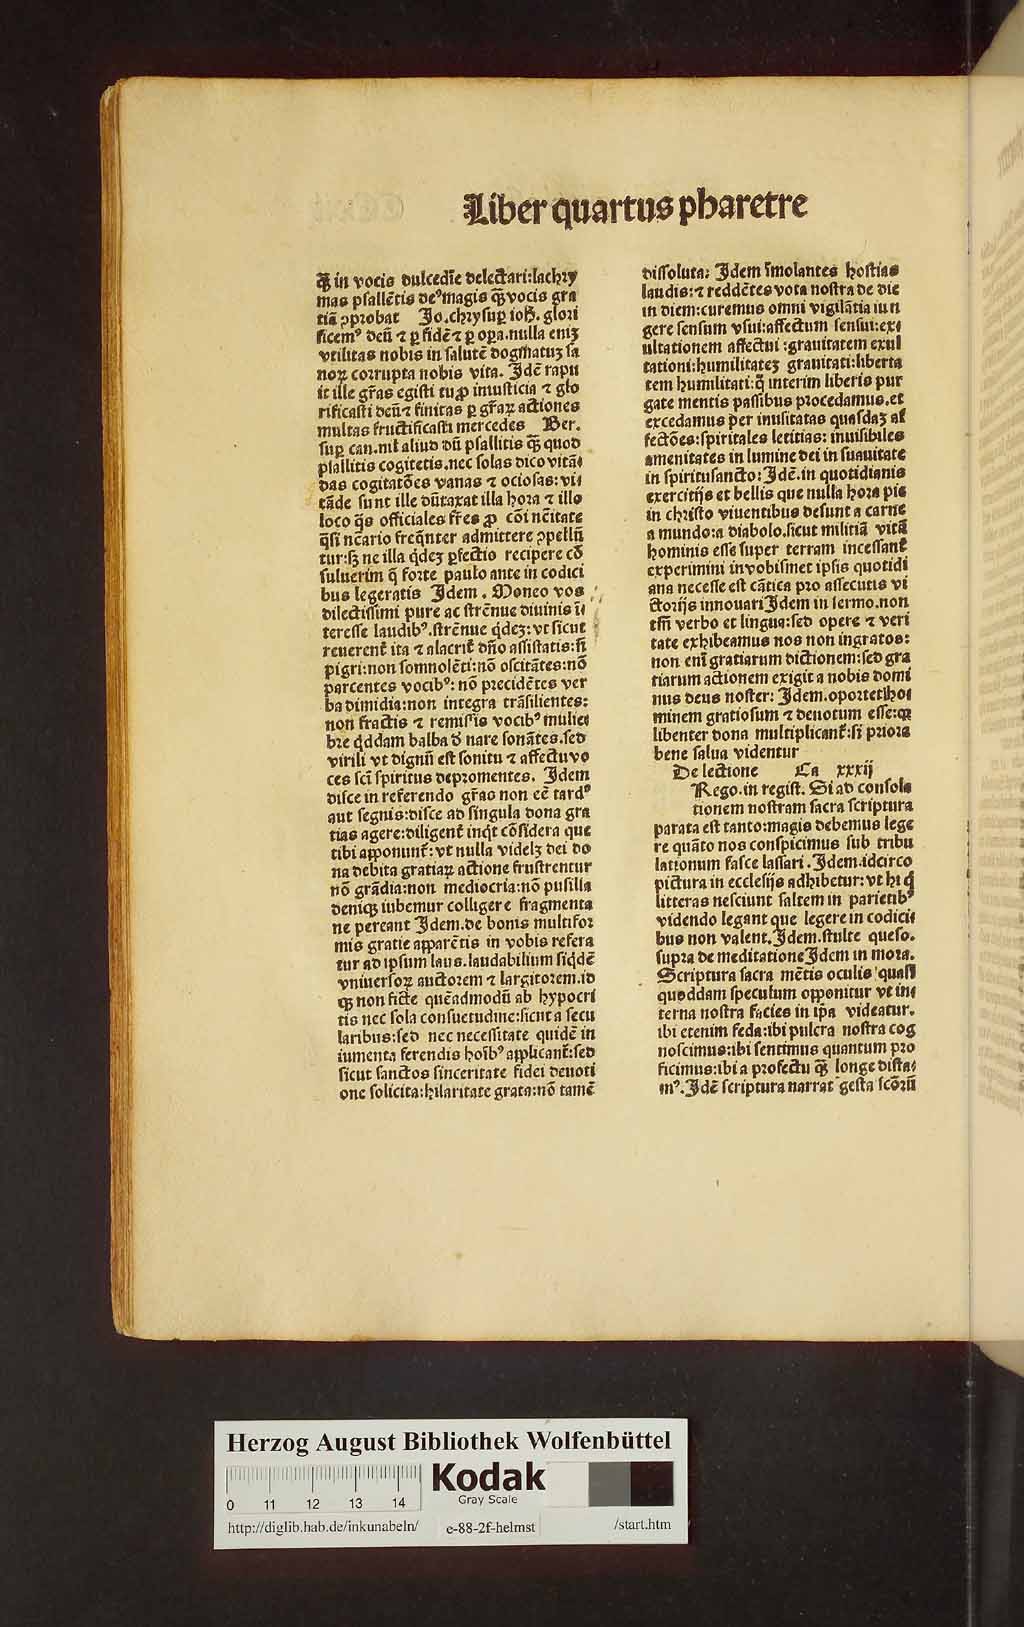 Liber quartus pharetre
ꝙ̃ in vocis dulcedīe delectari:lachry
mas psallētis de⁹ magis ꝙ̃ vocis gra
tiā ꝓprobat Jo.chry suꝑ ioh̄. glori
ficem⁹ deū ⁊ ꝑ fidē ⁊ ꝑ oꝑa.nulla eniꝫ
vtilitas nobis in salutē dogmatuꝫ sa
noꝝ corrupta nobis vita. Jdē rapu
it ille gr̄as egisti tu ꝓ iniusticia ⁊ glo
rificasti deū ⁊ finitas ꝑ gr̄aꝝ actiones
multas fructificasti mercedes Ber.
suꝑ can.nil aliud dū psallitis ꝙ̃ quod
psallitis cogitetis.nec solas dico vitā⸗
das cogitatōes vanas ⁊ ociosas:vi⸗
tāde sunt ille dūtaxat illa hora ⁊ illo
loco q̄s officiales fr̄es ꝓ cōi nc̄itate
q̄si nc̄ario freq̄nter admittere ꝯpellū
tur:sꝫ ne illa q̇deꝫ ꝑfectio recipere cō
suluerim q̄ forte paulo ante in codici
bus legeratis Jdem. Moneo vos
dilectissimi pure ac strēnue diuinis ī⸗
teresse laudib⁹.strēnue q̇deꝫ:vt sicut
reuerent̄ ita ⁊ alacrit̄ dn̄o assistatis:n̄
pigri:non somnolēti:nō oscitātes:nō
parcentes vocib⁹: nō precidētes ver
ba dimidia:non integra trāsilientes:
non fractis ⁊ remissis vocib⁹ mulie⸗
bre q̇ddam balba d̄ nare sonātes.sed
virili vt dignū est sonitu ⁊ affectu vo
ces scī spiritus depromentes. Jdem
disce in referendo gr̄as non eē tard⁹
aut segnis:disce ad singula dona gra
tias agere:diligent̄ inq̇t cōsidera que
tibi apponunt̄:vt nulla videlꝫ dei do
na debita gratiaꝝ actione frustrentur
nō grādia:non mediocria:nō pusilla
deniqꝫ iubemur colligere fragmenta
ne pereant Jdem.de bonis multifor
mis gratie apparētis in vobis refera
tur ad ipsum laus.laudabilium siq̇dē
vniuersoꝝ auctorem ⁊ largitorem.id
qꝫ non ficte quēadmodū ab hypocri
tis nec sola consuetudine:sicut a secu
laribus:sed nec necessitate quidē in
iumenta ferendis hoīb⁹ applicant̄:sed
sicut sanctos sinceritate fidei deuoti
one solicita:hilaritate grata:nō tamē
dissoluta: Jdem īmolantes hostias
laudis:⁊ reddētes vota nostra de die
in diem:curemus omni vigilātia iun
gere sensum vsui:affectum sensui:ex⸗
ultationem affectui:grauitatem exul
tationi:humilitateꝫ grauitati:liberta
tem humilitati:q̄ interim liberis pur
gate mentis passibus procedamus.et
excedamus per inusitatas quasdaꝫ af
fectōes:spiritales letitias: inuisibiles
amenitates in lumine dei in suauitate
in spiritusancto: Jdē.in quotidianis
exercitijs et bellis que nulla hora pie
in christo viuentibus desunt a carne
a mundo:a diabolo.sicut militiā vitā
hominis esse super terram incessant̄
experimini in vobisimet ipsis quotidi
ana necesse est cātica pro assecutis vi
ctorijs innouari Jdem in sermo.non
tm̄ verbo et lingua:sed opere ⁊ veri
tate exhibeamus nos non ingratos:
non enī gratiarum dictionem:sed gra
tiarum actionem exigit a nobis domi
nus deus noster: Jdem.oportet ho⸗
minem gratiosum ⁊ deuotum esse:qꝛ
libenter dona multiplicant̄:si priora
bene salua videntur
De lectione Ca xxxij
Rego.in regist. Si ad consola
tionem nostram sacra scriptura
parata est tanto:magis debemus lege
re quāto nos conspicimus sub tribu
lationum fasce lassari. Jdem.idcirco
pictura in ecclesijs adhibetur:vt hi q̇
litteras nesciunt saltem in parietib⁹
videndo legant que legere in codici⸗
bus non valent. Jdem.stulte queso.
supra de meditatione Jdem in mora.
Scriptura sacra mētis oculis quasi
quoddam speculum opponitur vt in⸗
terna nostra facies in ip̄a videatur.
ibi etenim feda:ibi pulcra nostra cog
noscimus:ibi sentimus quantum pro
ficimus:ibi a profectu ꝙ̃ longe dista⸗
m⁹. Jdē scriptura narrat gesta scōrū
Herzog August Bibliothek Wolfenbüttel
Kodak
Gray Scale
0 11 12 13 14
http://diglib.hab.de/inkunabeln/ e-88-2f-helmst /start.htm